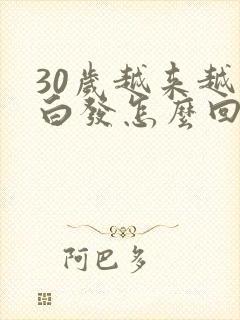 30歲越来越
白發怎麼回
阿巴多